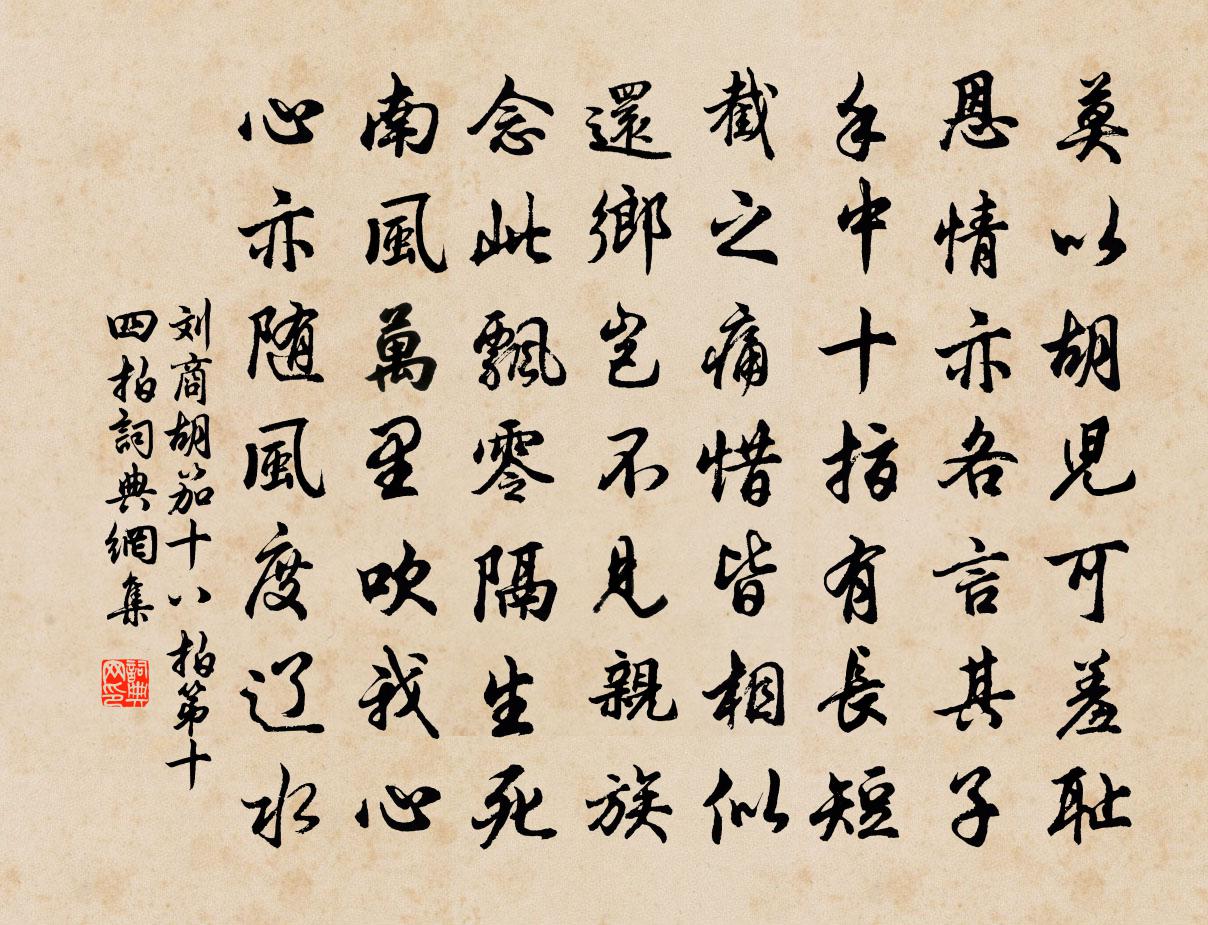 莫以胡児可羞耻
恩情亦各言其子
手中十指有長短
截之痛惜皆相似
還鄉豈不見親族
念此飄零隔生死
南風萬里吹我心
心亦随風度辽水
刘商胡笳十八拍第十
四拍詞典網集
詞典
网印